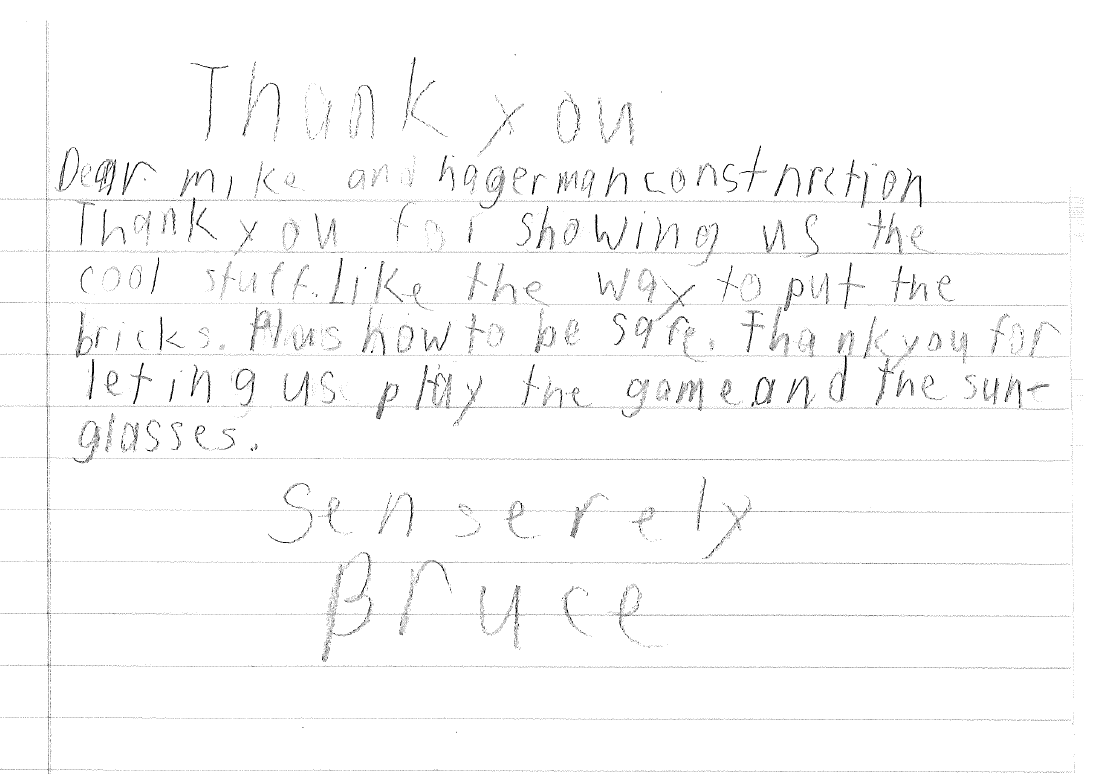 Thank you
Dear mike and hagerman constnrction
Thank you for showing us the
cool stuff. Like the way to put the
bricks. Plus how to be safe. Thank you for
leting us play the game and the sun-
glasses.
Senserely
Bruce